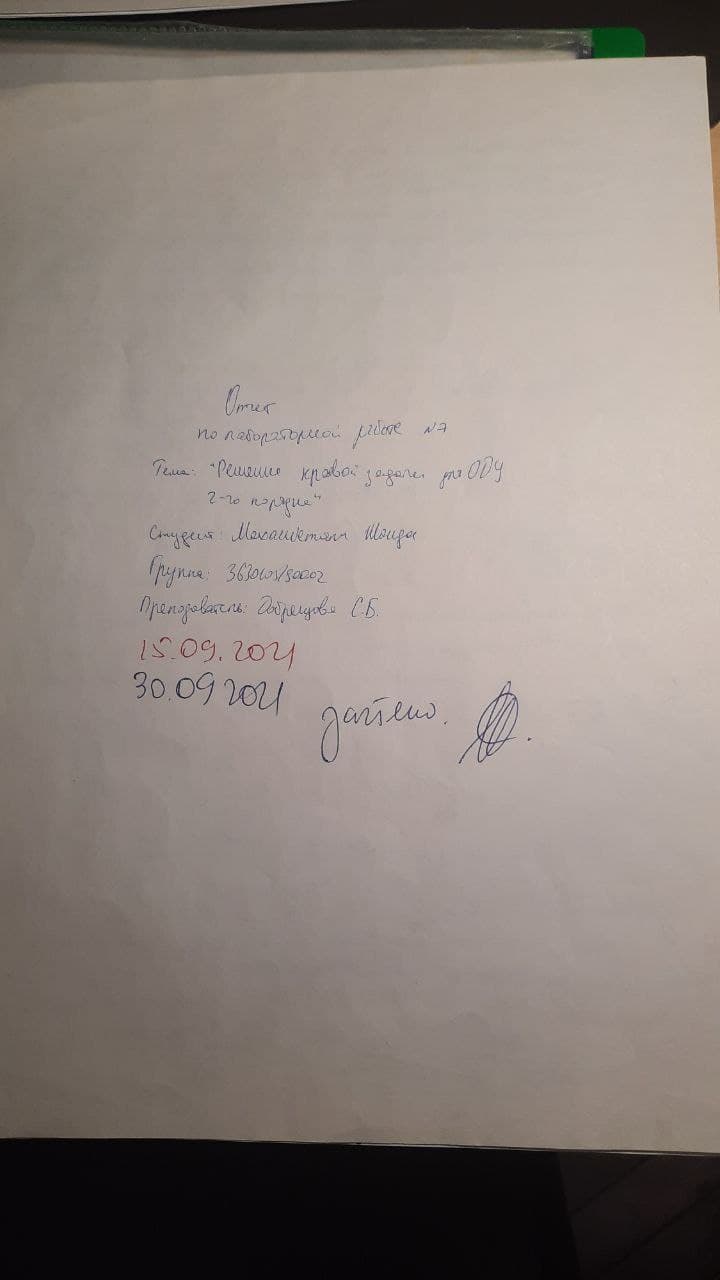 Отчет
по лабораторной работе №7
Тема: "Решение краевой задачи для ОДУ
2-го порядка"
Студент:
Группа: 3630105/80002
Преподаватель: Добрецова С.Б.
15.09.2021
30.09 2021
зачтено.